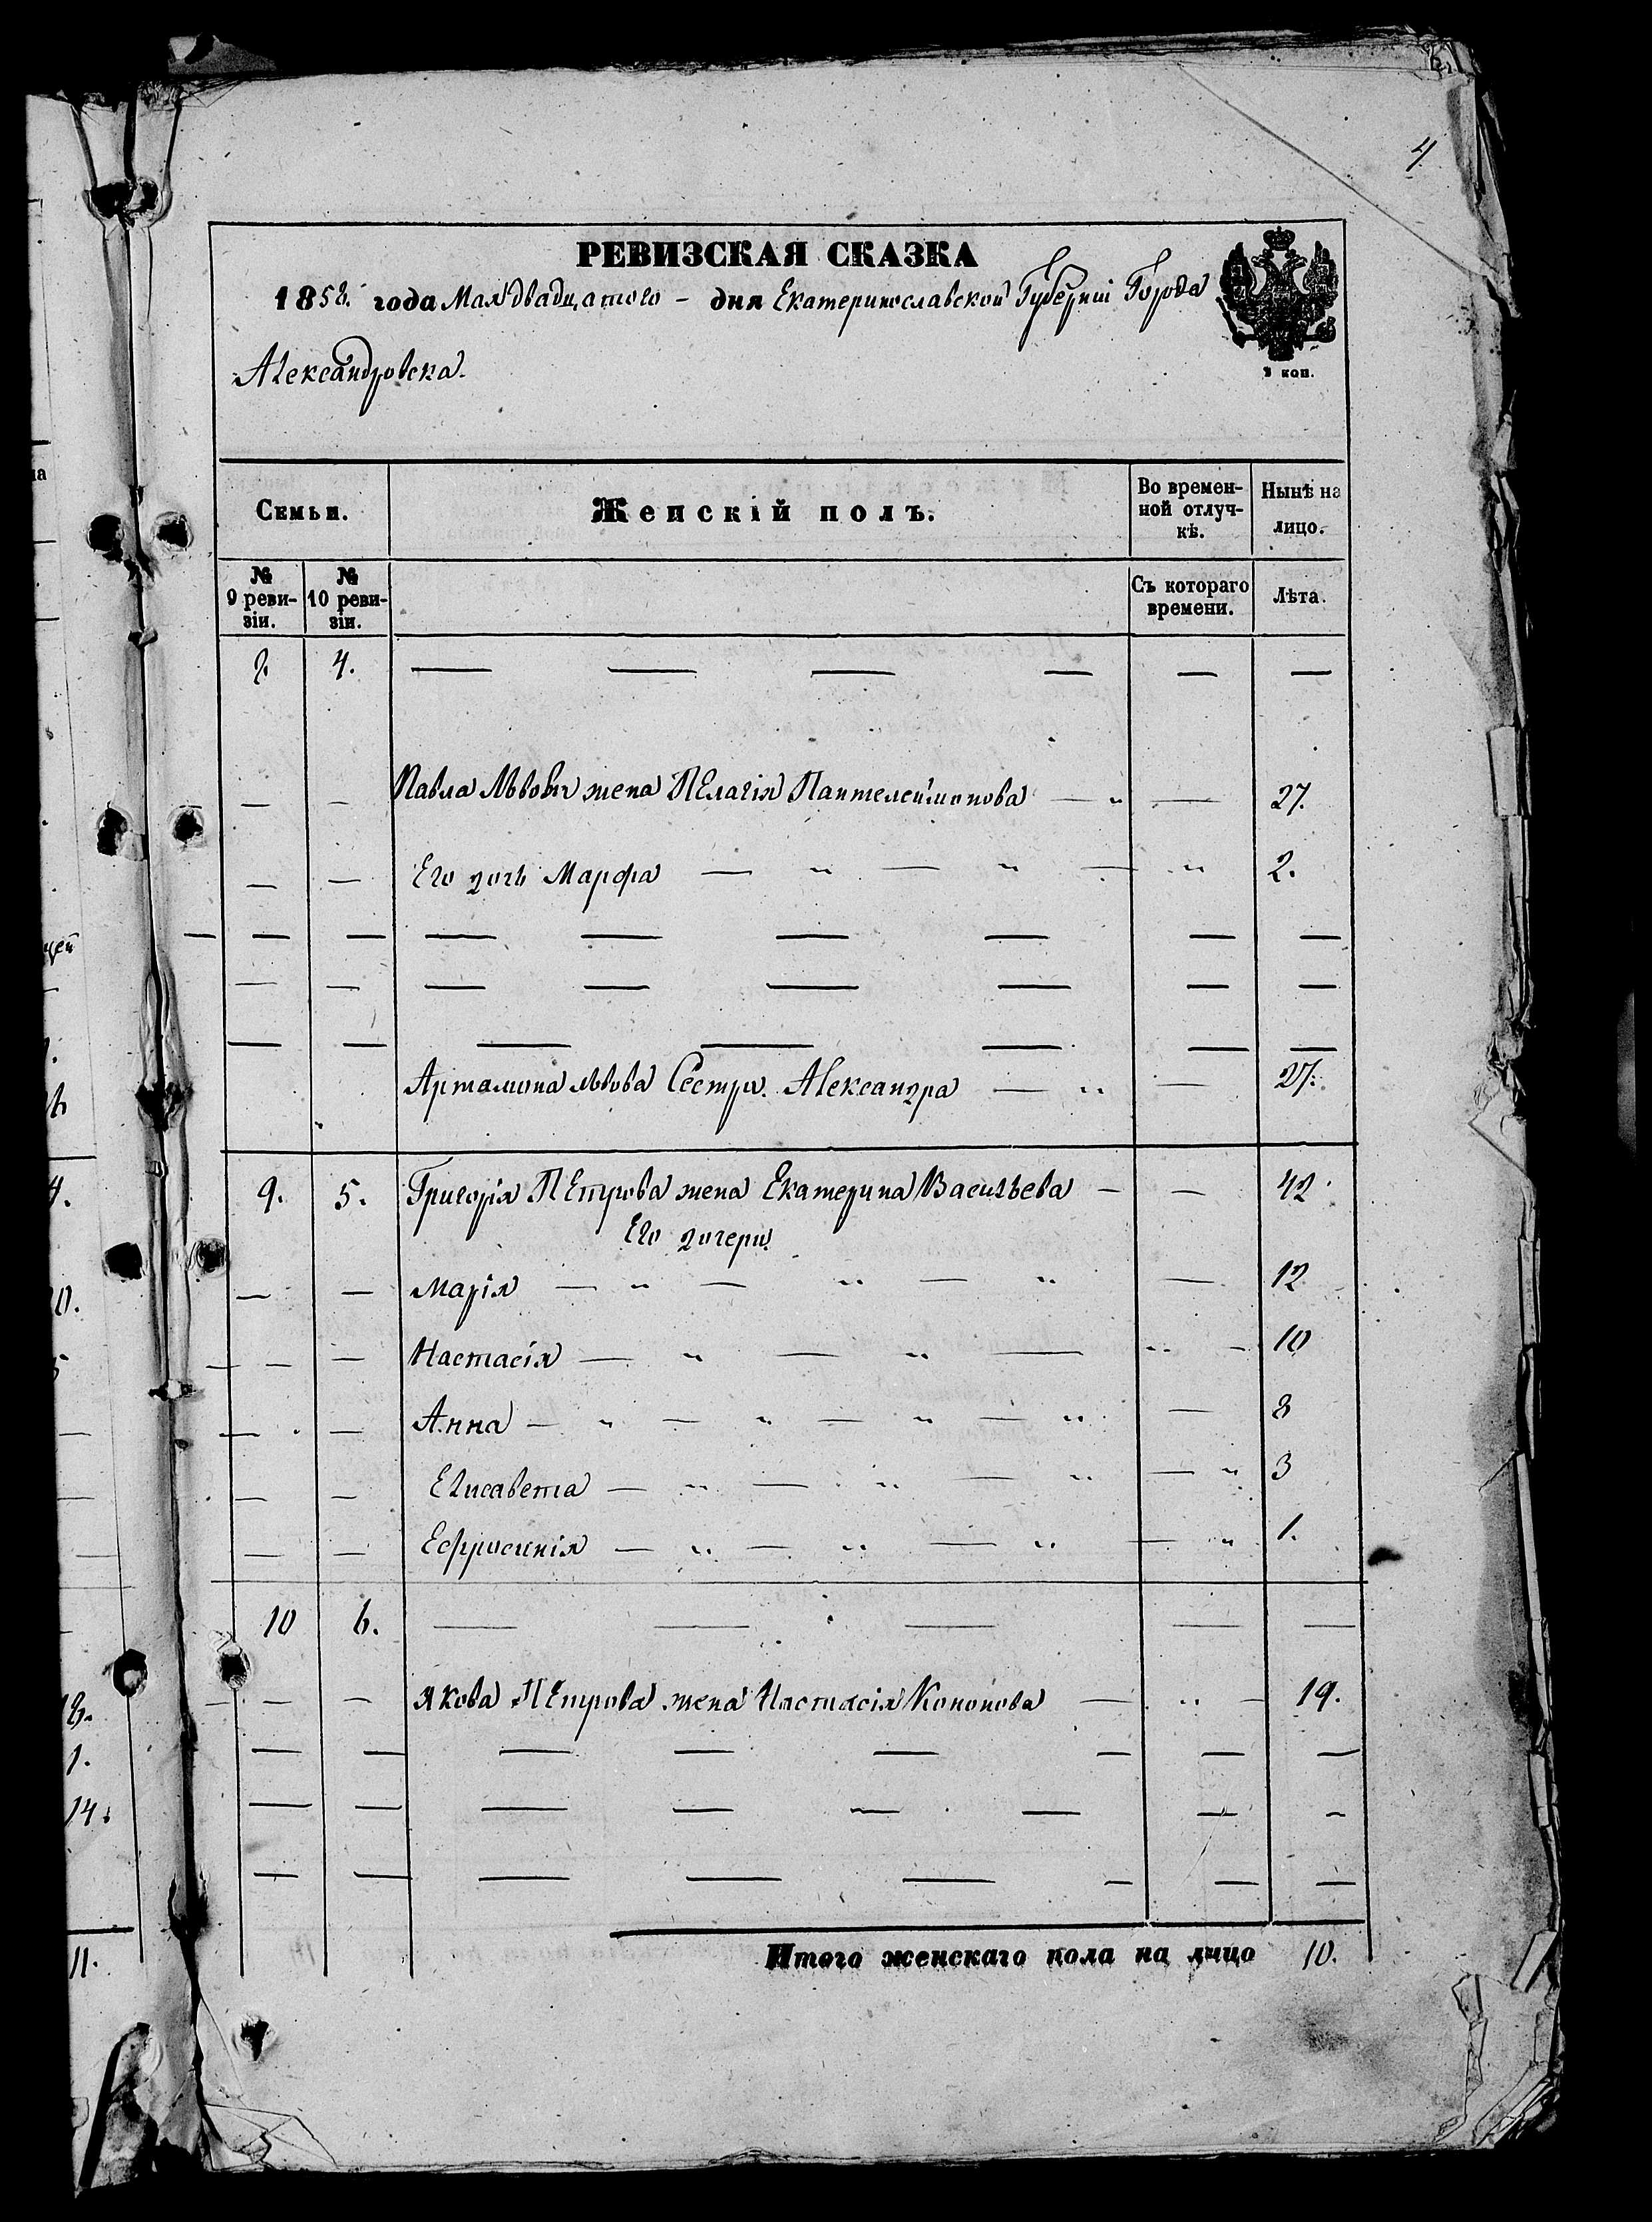 4
РЕВИЗСКАЯ СКАЗКА
1858. года Мая двадцатого – дня Екатеринославской Губерніи Города
Александровска.
3 коп.
Семьи. Женскій полъ. Во времен-ной отлуч-кѣ. Нынѣ на лицо.
№ 9 реви-зіи. № 10 реви-зіи. Съ котораго времени. Лѣта.
8 4. — — — — — —
— — Павла Львова жена Пелагія Пантелеймонова — „ — 27.
— — Его дочь Марфа — „ — „ — „ 2.
— — — — — — — —
— — — — — — — —
— — — — — — —
Артамона Львова Сестра Александра — „ — 27.
9. 5. Григорія Петрова жена Екатерина Васильева — — 42.
Его дочери
— — Марія — „ — „ — „ — 12
— — Настасія — „ — „ — „ — 10
— — Анна — „ — „ — „ — „ — 8
— — Елисавета — „ — „ — „ — „ 3
— — Ефросинія — „ — „ — „ — „ 1.
10 6. — — — — —
— — Якова Петрова жена Настасія Кононова — „ — 19.
— — — — — — — —
— — — — — — — —
— — — — — — — —
Итого женскаго пола на лицо 10.